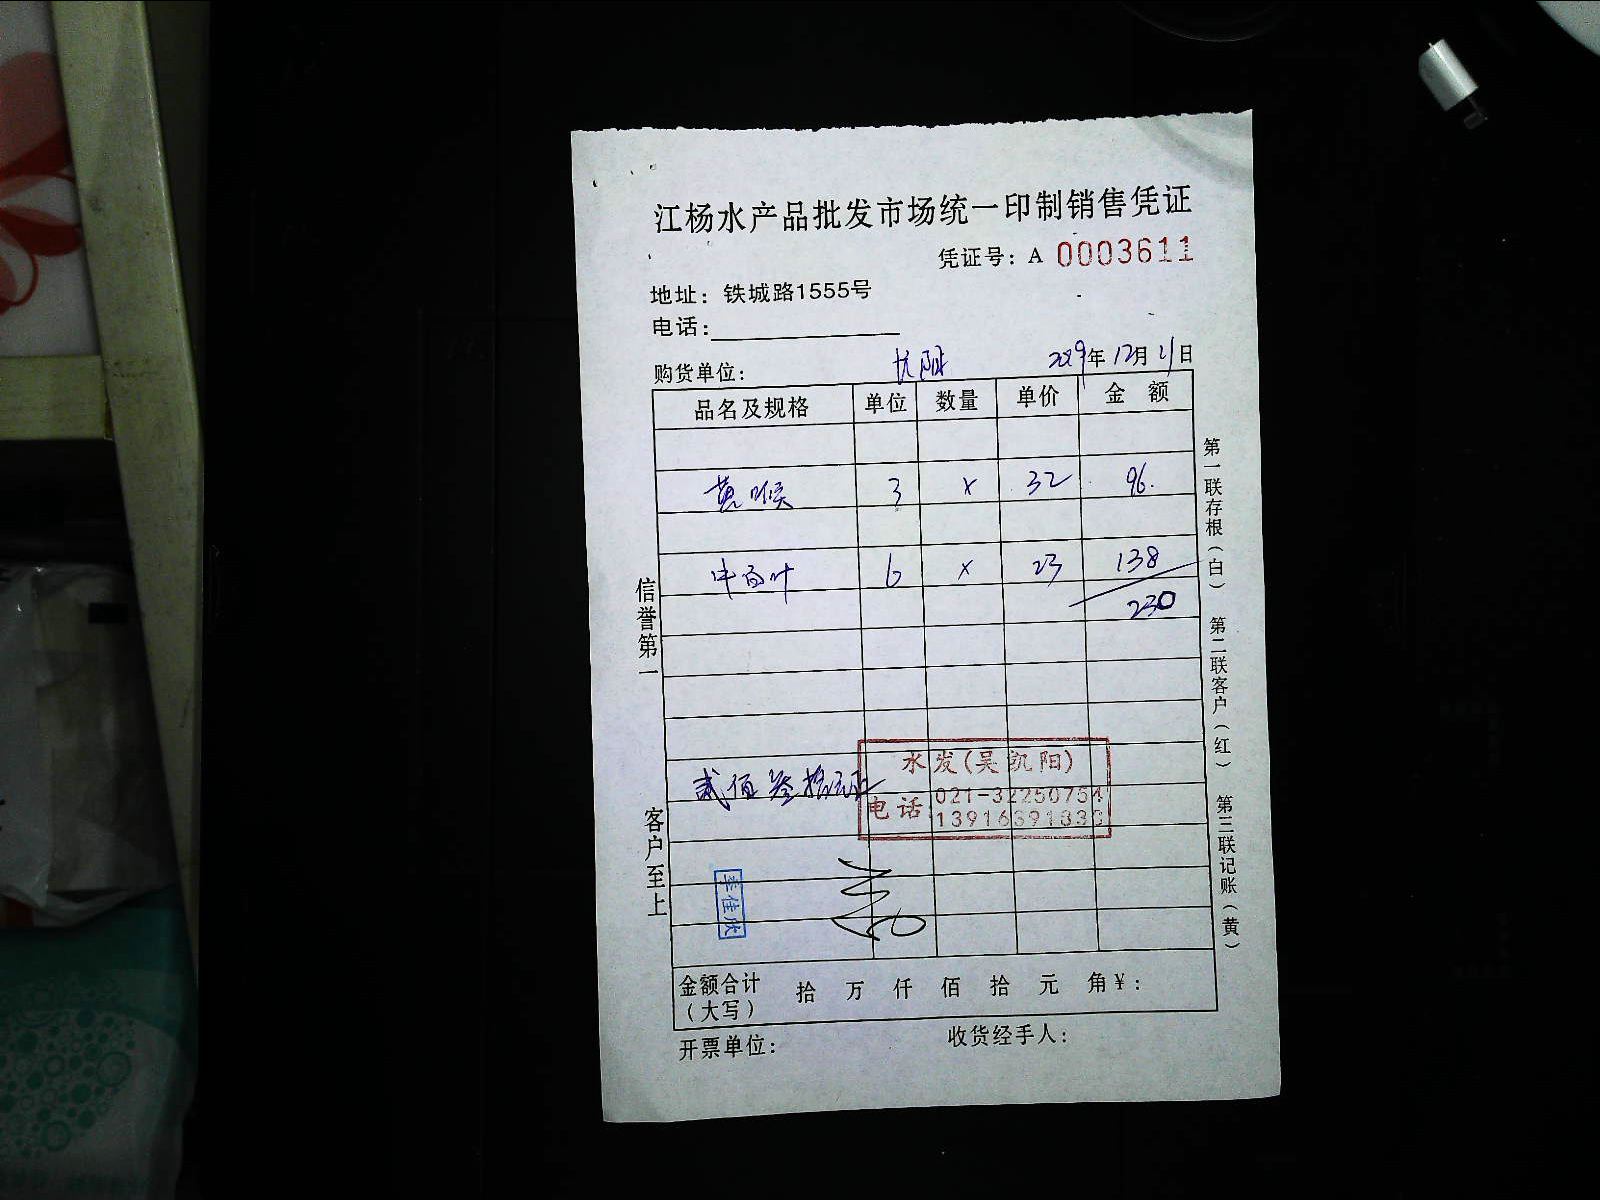 江杨水产品批发市场统一印制销售凭证
凭证号：A 0003611
地址：铁城路1555号
电话：
购货单位： 2019年12月21日
品名及规格 单位 数量 单价 金 额
黄喉 3 × 32 96.
牛百叶 6 × 23 138
230
贰佰叁拾元正
水发(吴凯阳)
电话 021-32250754
李佳欣
金额合计 拾 万 仟 佰 拾 元 角¥：
（大写）
开票单位： 收货经手人：
信誉第一
客户至上
第一联存根（白） 第二联客户（红） 第三联记账（黄）